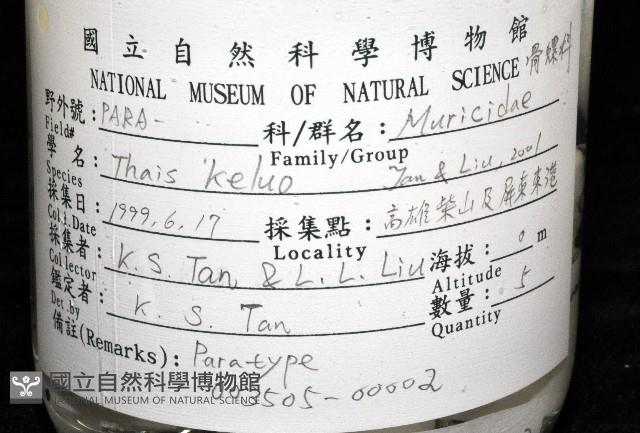 國立自然科學博物館
NATIONAL MUSEUM OF NATURAL SCIENCE 骨螺科
野外號: PARA- 科/群名: Muricidae
Field# Family/Group
學名: Thais keluo Tan & Liu, 2001
Species
採集日: 1999, 6, 17 採集點: 高雄柴山及屏東東港
Col't.Date Locality
採集者: K. S. Tan & L. L. Liu 海拔: 0 m
Collector Altitude
鑑定者: K. S. Tan 數量: 5
Det.by Quantity
備註(Remarks): Paratype
3505-00002
國立自然科學博物館
NATIONAL MUSEUM OF NATURAL SCIENCE